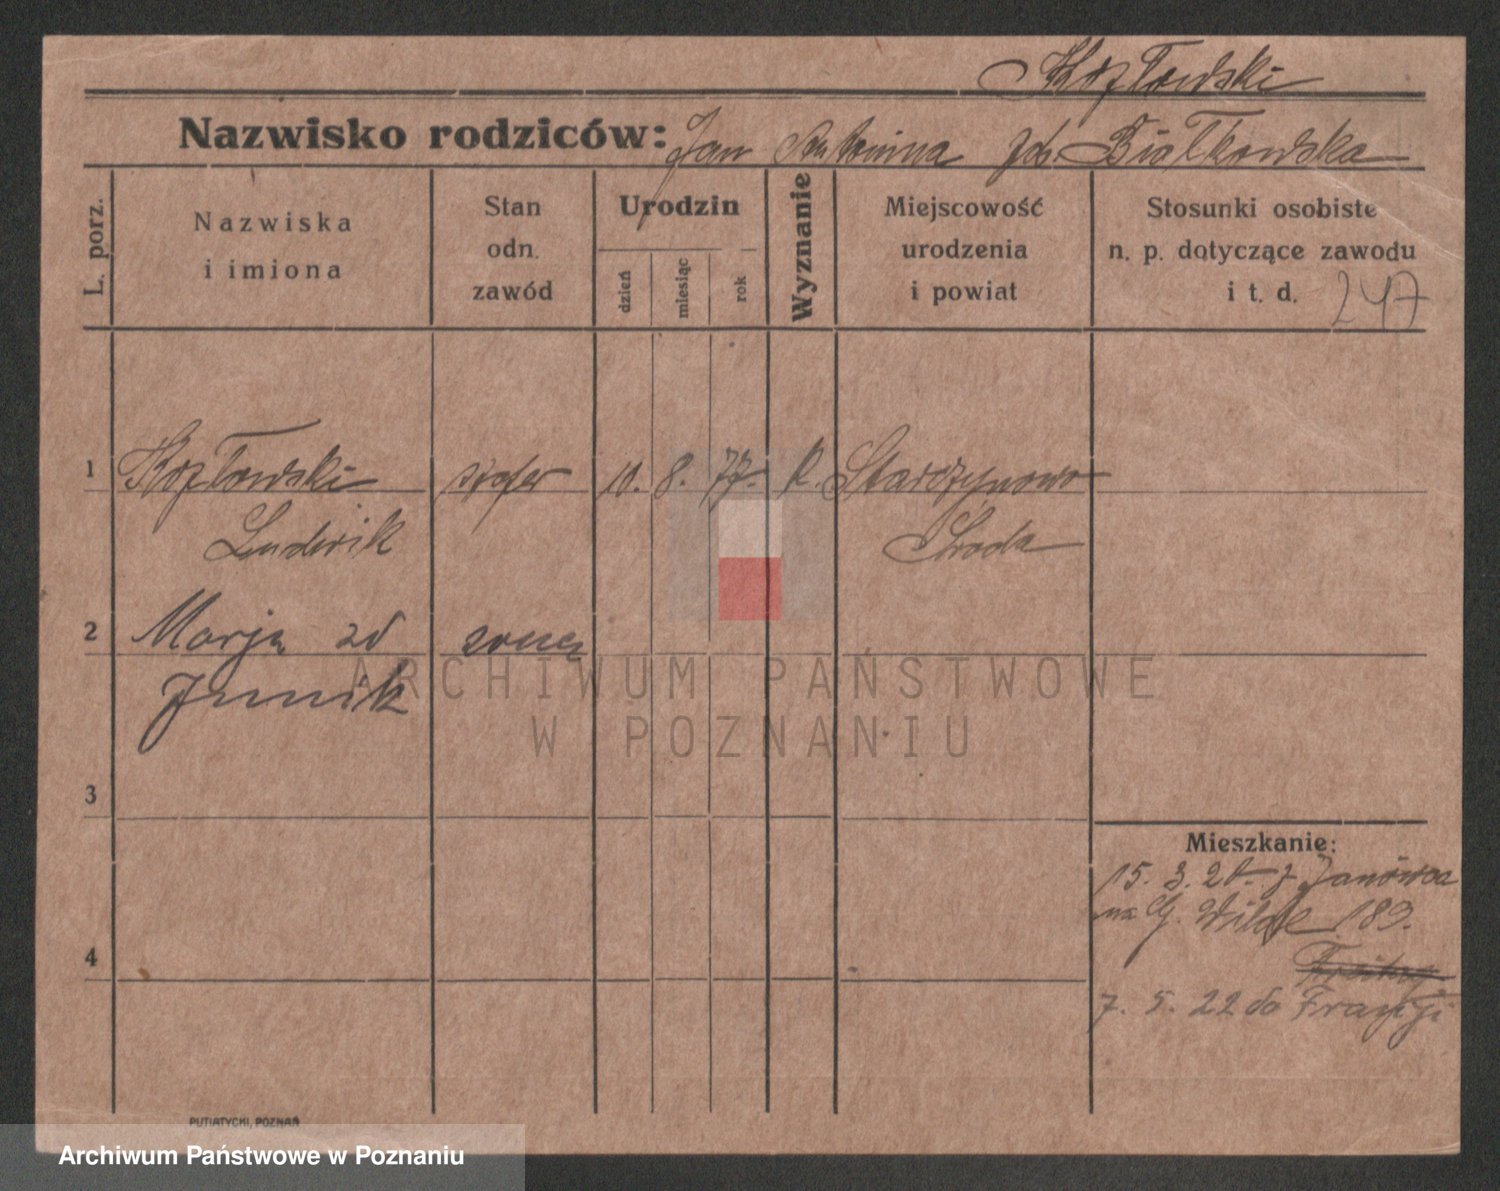 Kozłowski
Nazwisko rodziców: Jan Antonina zd. Białkowska
L. porz.
Nazwiska
i imiona
Stan
odn.
zawód
Urodzin
dzień
miesiąc
rok
Wyznanie
Miejscowość
urodzenia
i powiat
Stosunki osobiste
n. p. dotyczące zawodu
i t. d. 247
1 Kozłowski szofer 10. 8. 77. k. Starczynowo
Ludwik Środa
2 Marja zd żona
3
4
Mieszkanie:
15. 3. 20. z Janówca
na G. Wilde 183.
7. 5. 22 do Francji
PUTIATYCKI, POZNAŃ
ARCHIWUM PAŃSTWOWE
W POZNANIU
Archiwum Państwowe w Poznaniu